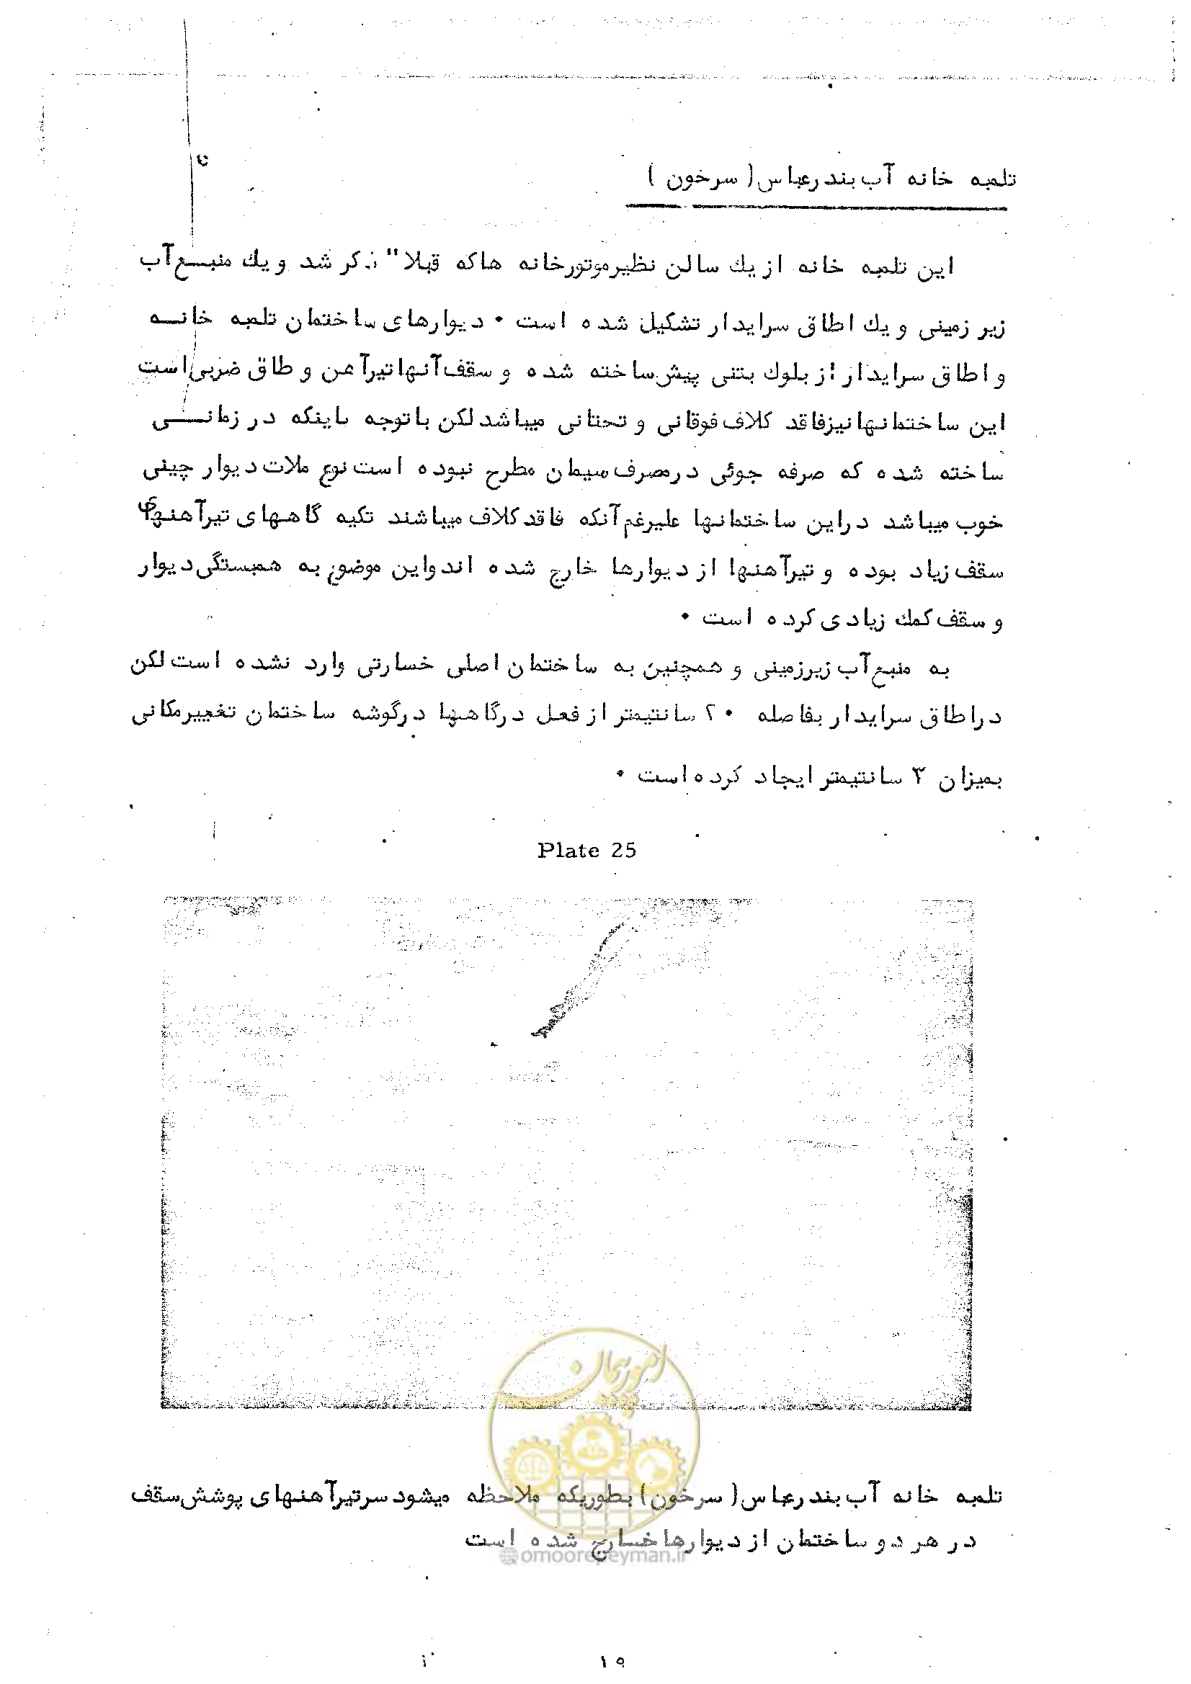 تلمبه خانه آب بندرعباس ( سرخون )
این تلمبه خانه از یك سالن نظیرموتورخانه هاكه قبلا" ذكر شد و یك منبـــع آب
زیر زمینی و یك اطاق سرایدار تشكیل شده است ۰ دیوارهای ساختمان تلمبه خانـــه
و اطاق سرایدار از بلوك بتنی پیش ساخته شده و سقف آنها تیرآهن و طاق ضربی است
این ساختمانها نیزفاقد كلاف فوقانی و تحتانی میباشد لكن با توجه باینكه در زمانـــی
ساخته شده كه صرفه جوئی درمصرف سیمان مطرح نبوده است نوع ملات دیوار چینی
خوب میباشد دراین ساختمانها علیرغم آنكه فاقد كلاف میباشند تكیه گاههای تیرآهنهای
سقف زیاد بوده و تیرآهنها از دیوارها خارج شده اند واین موضوع به همبستگی دیوار
و سقف كمك زیادی كرده است ۰
به منبع آب زیرزمینی و همچنین به ساختمان اصلی خسارتی وارد نشده است لكن
دراطاق سرایدار بفاصله ۲۰ سانتیمتر از فعل درگاهها درگوشه ساختمان تغییرمكانی
بمیزان ۳ سانتیمتر ایجاد كرده است ۰
Plate 25
امور پیمان
تلمبه خانه آب بندرعباس ( سرخون ) بطوریكه ملاحظه میشود سرتیرآهنهای پوشش سقف
در هر دو ساختمان از دیوارها خارج شده است
@omoorepeyman.ir
۱۹